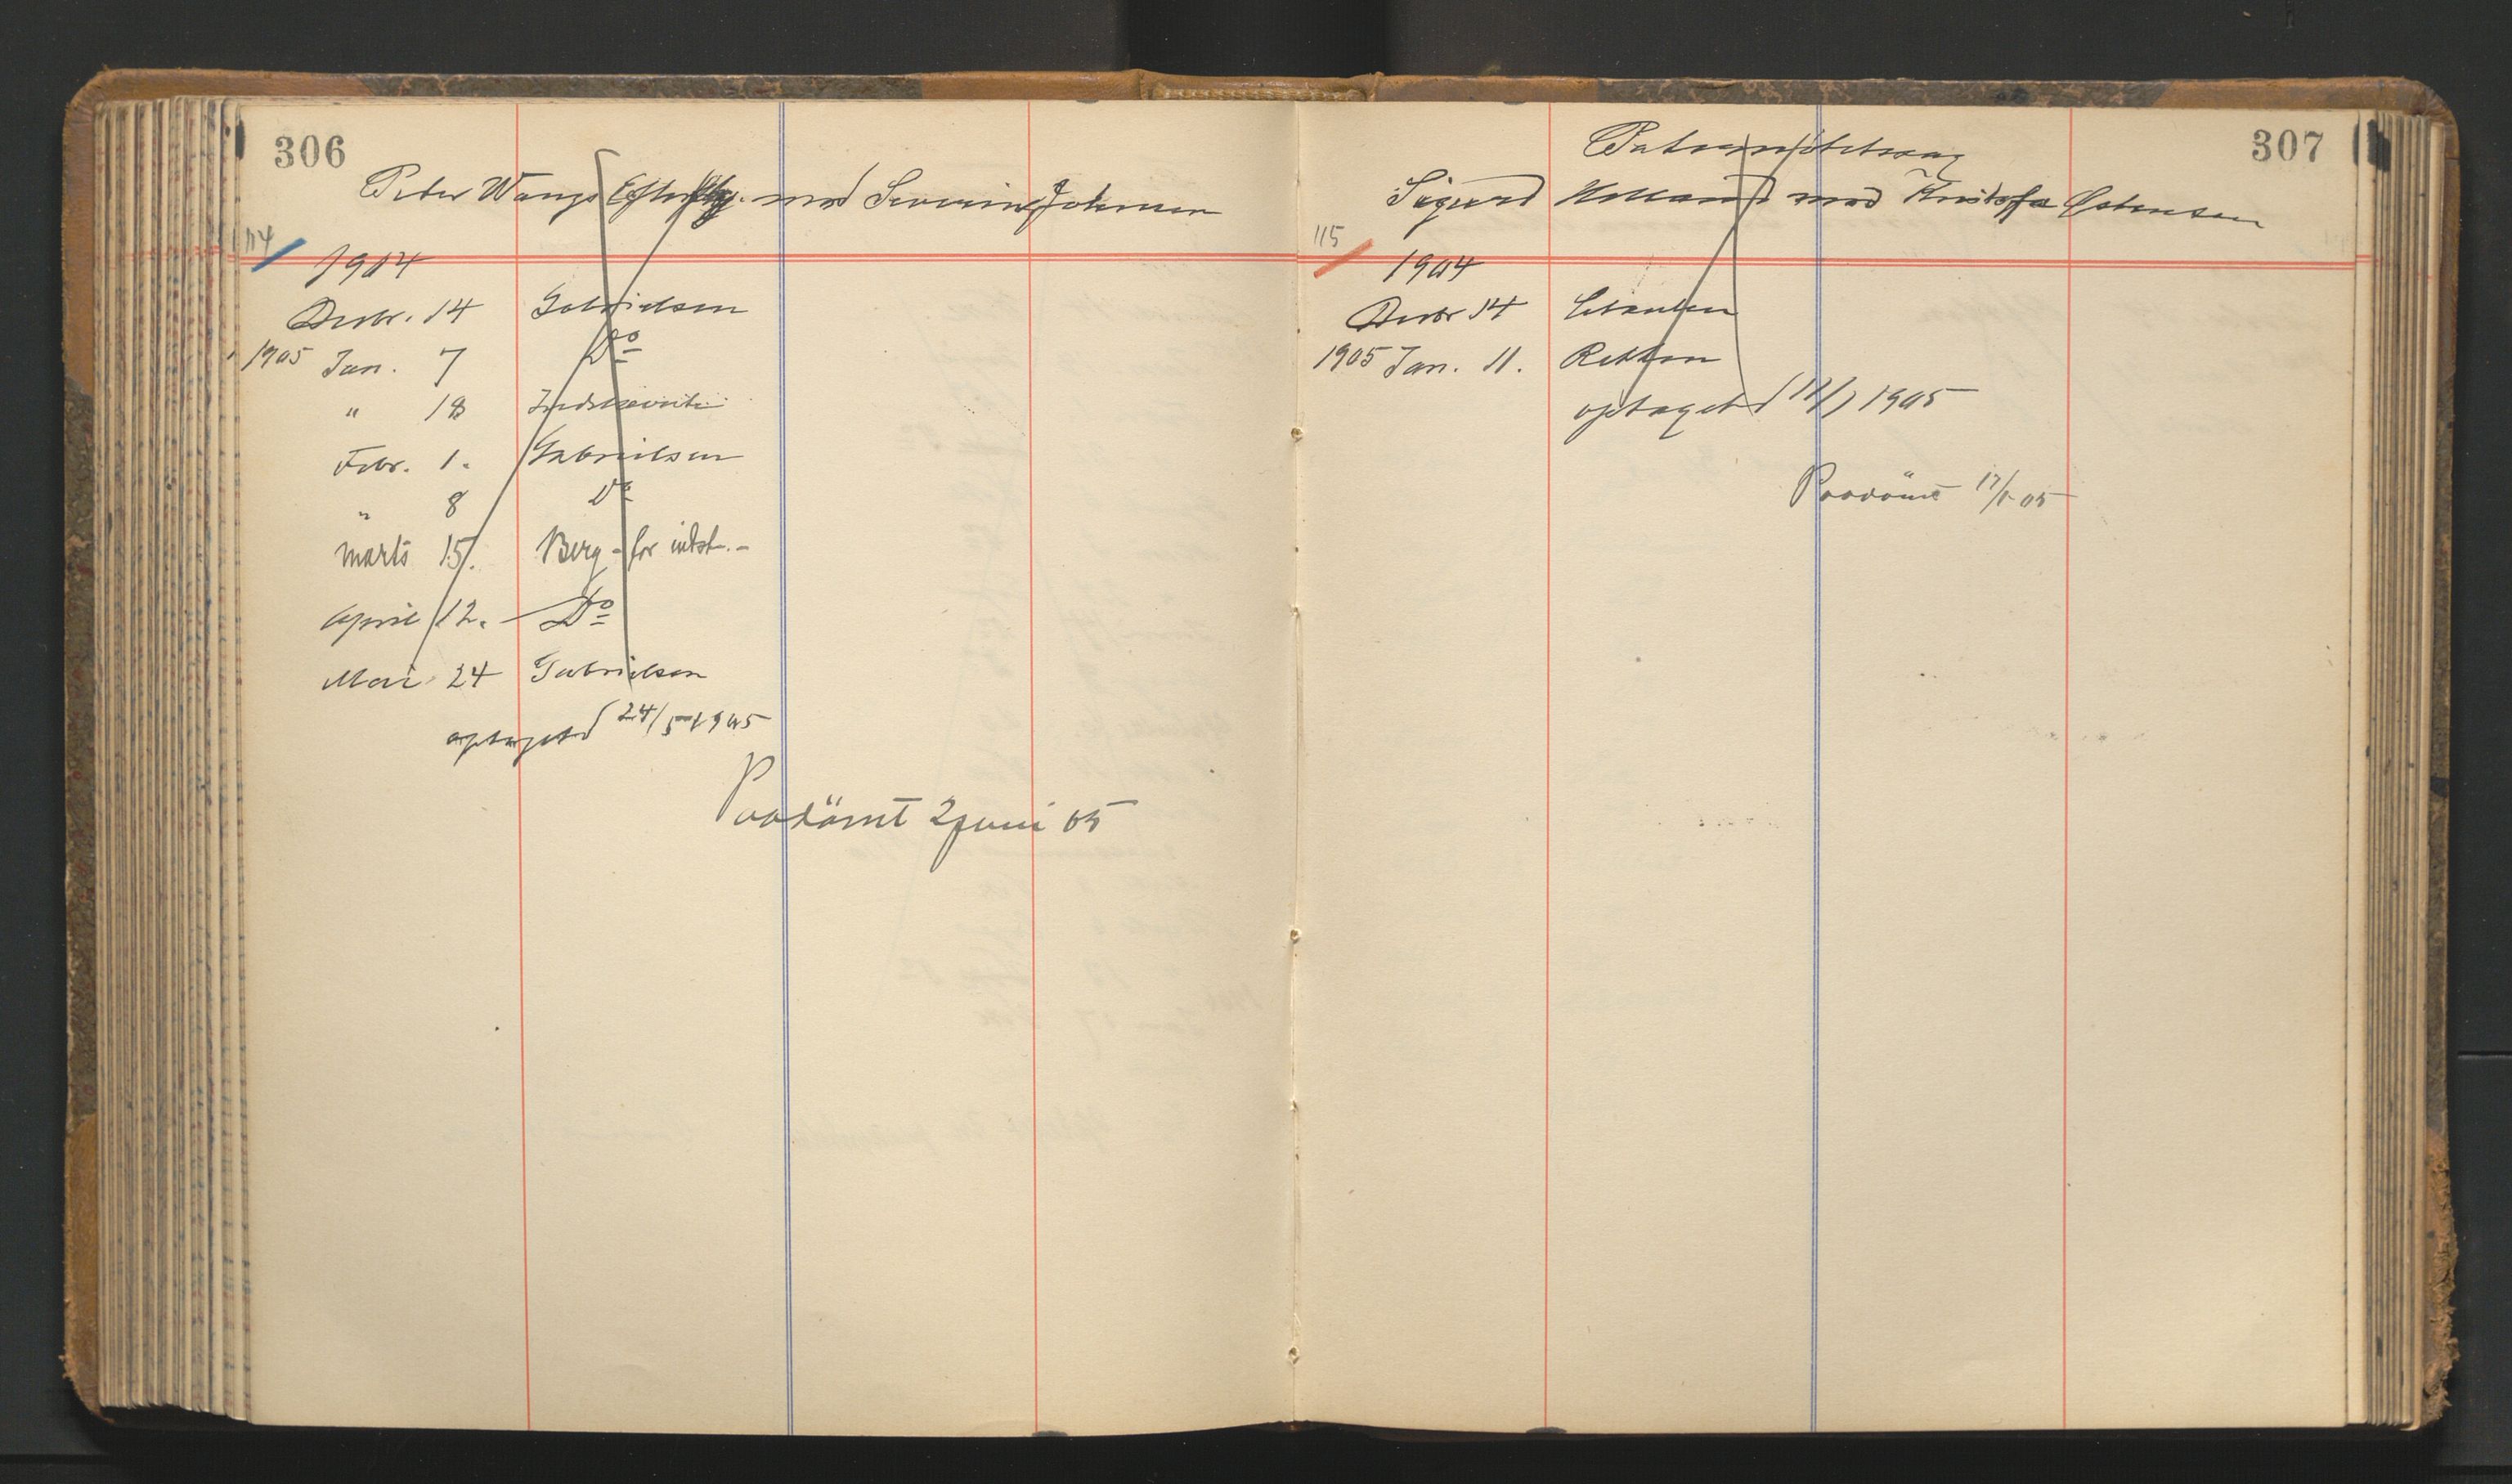 306
Peter Wangs Efterflg. mod Severin Johnsen
114
1904
Decbr. 14 Gabrielsen
1905 Jan. 7 Do
" 18
Febr. 1. Gabrielsen
" 8 Do
Marts 15. Berg - for indst. -
April 12. - Do
Mai 24 Gabrielsen
optaget 24/5 1905
Paadömt 2 juni 05
307
Sigurd mod Østensen
115
1904
Decbr 14
1905 Jan. 11. Retten
optaget 11/1 1905
Paadömt 17/1 05